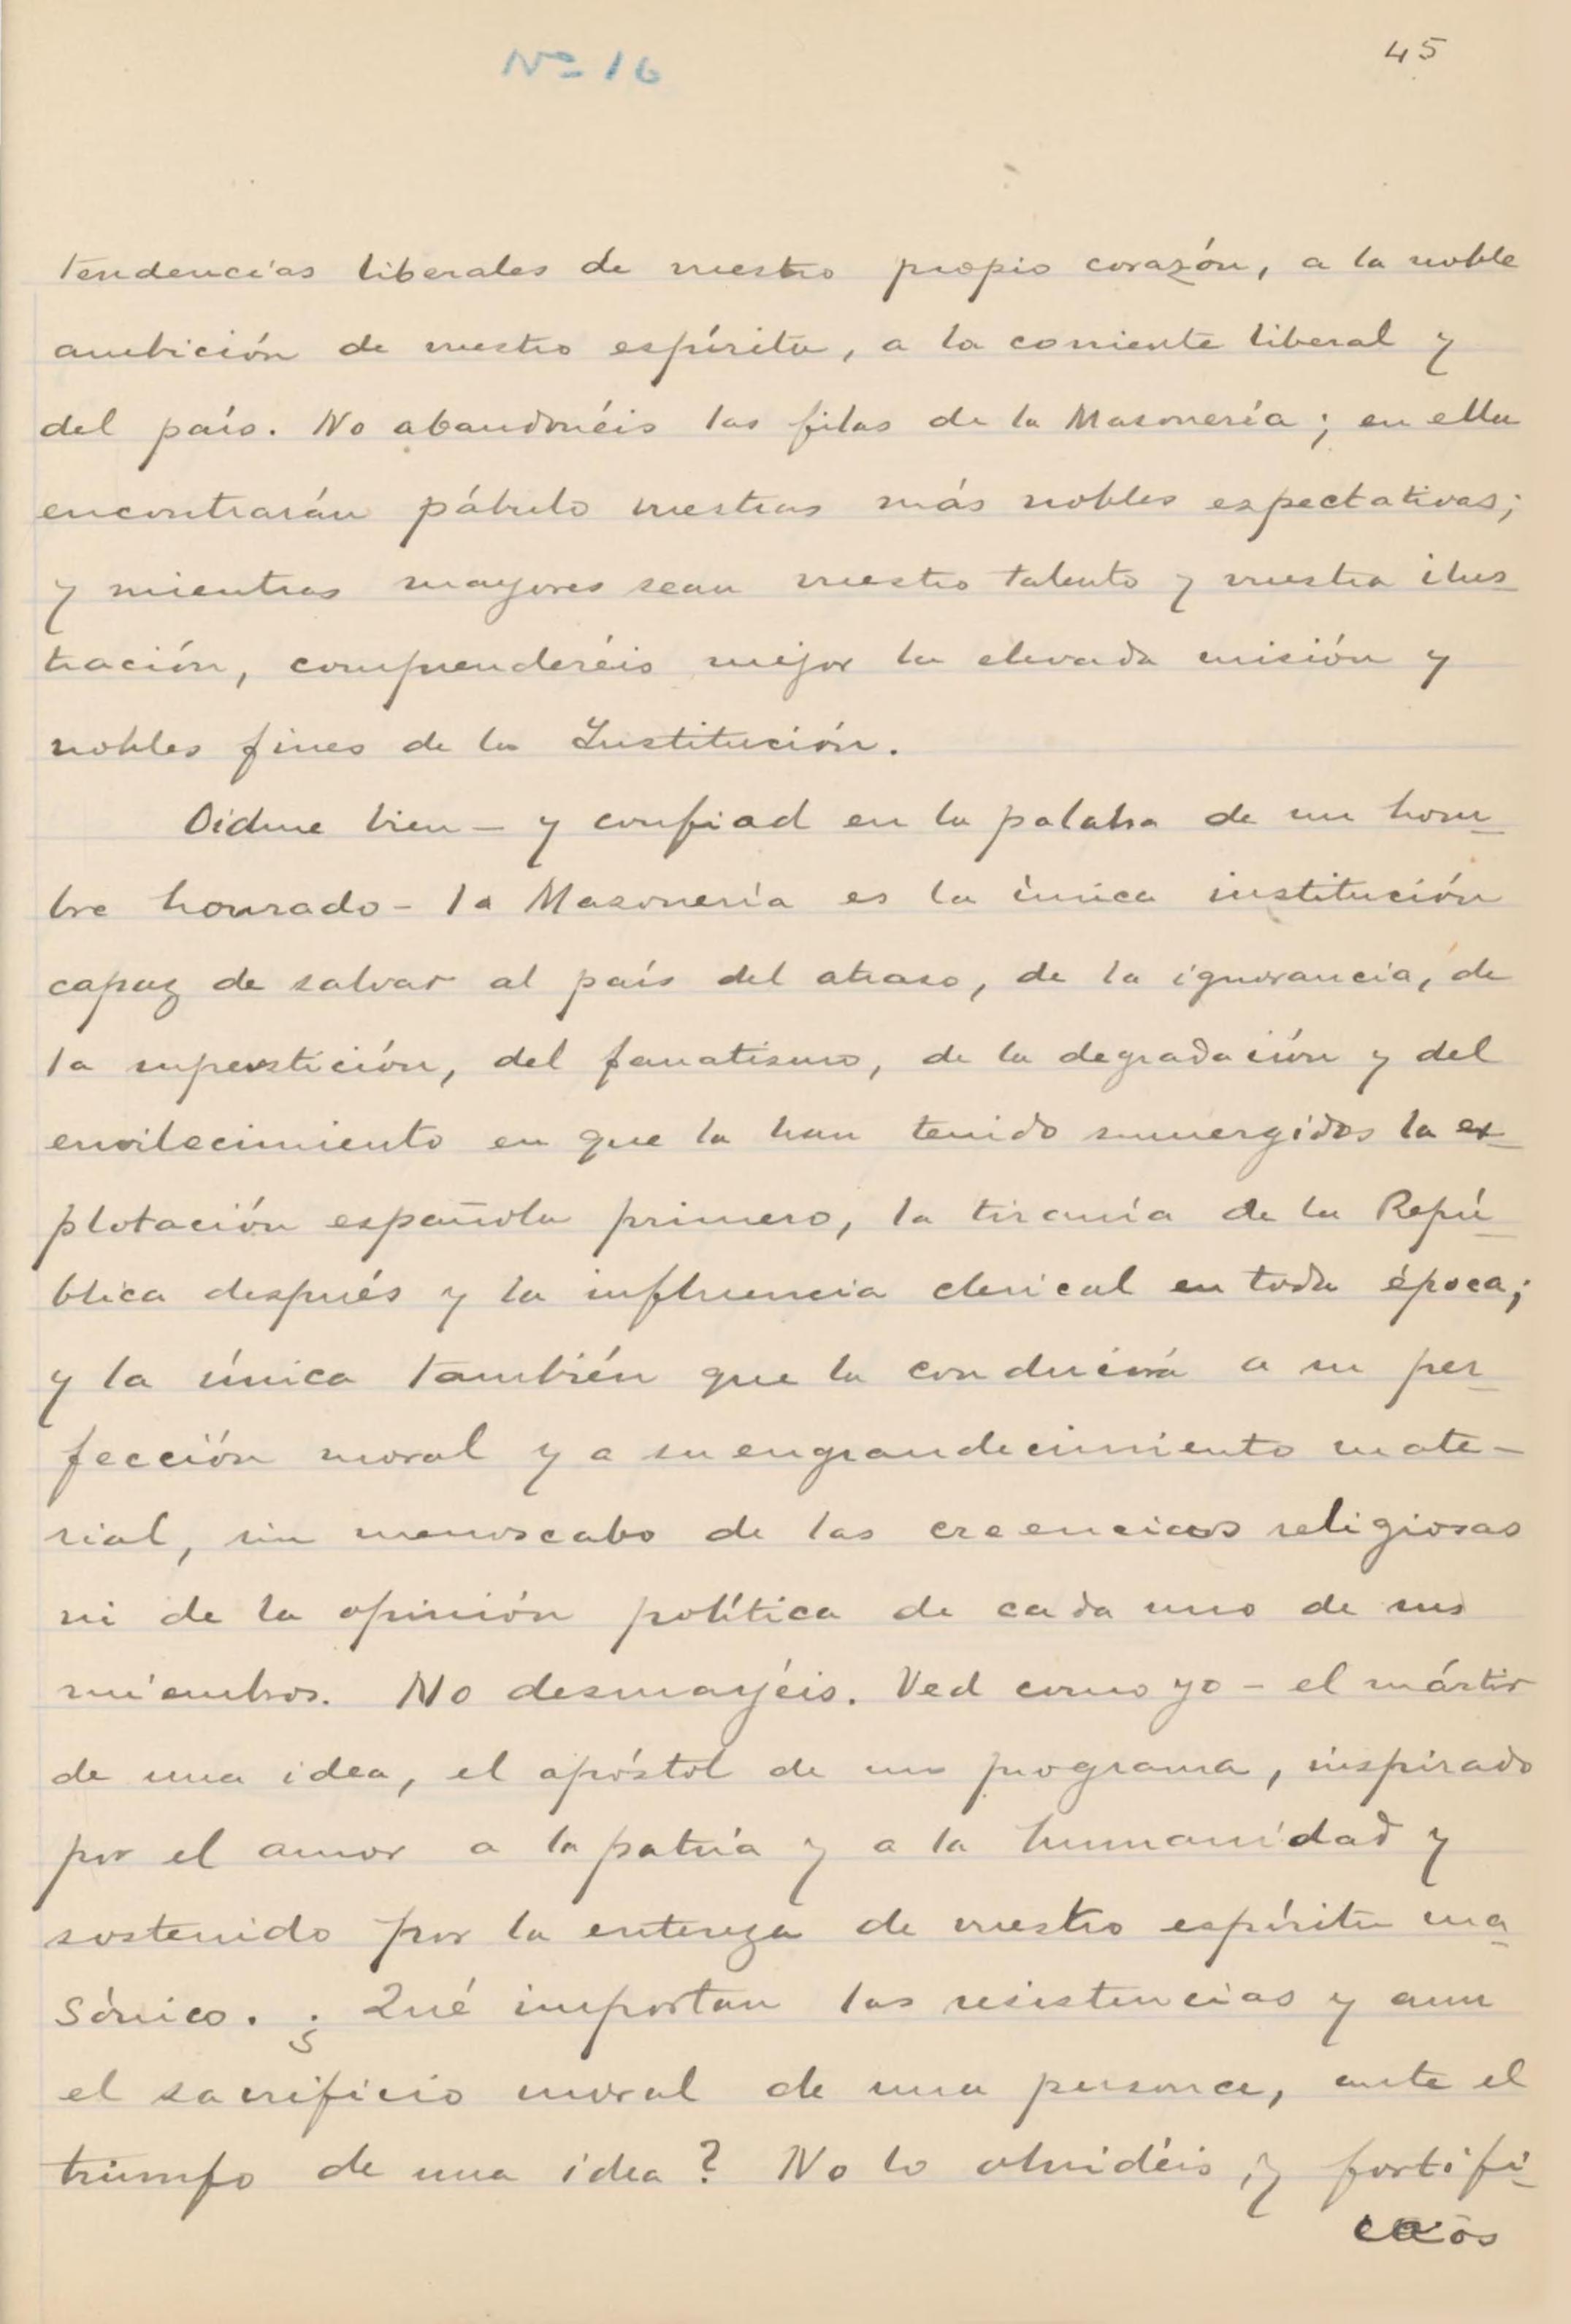 Nº 16
45
tendencias liberales de vuestro propio corazón, a la noble
ambición de vuestro espíritu, a la corriente liberal y
del país. No abandonéis las filas de la Masonería; en ella
encontrarán pábulo vuestras más nobles espectativas;
y mientras mayores sean vuestro talento y vuestra ilus_
tración, comprenderéis mejor la elevada misión y
nobles fines de la Institución.
Oidme bien - y confiad en la palabra de un hom_
bre honrado - la Masonería es la única institución
capaz de salvar al país del atraso, de la ignorancia, de
la superstición, del fanatismo, de la degradación y del
envilecimiento en que la han tenido sumergidos la ex_
plotación española primero, la tiranía de la Repú_
blica después y la influencia clerical en toda época;
y la única también que la conducirá a su per_
fección moral y a su engrandecimiento mate-
rial, sin menoscabo de las creencias religiosas
ni de la opinión política de cada uno de sus
miembros. No desmayéis. Ved como yo - el mártir
de una idea, el apóstol de un programa, inspirado
por el amor a la patria y a la humanidad y
sostenido por la entereza de vuestro espíritu ma_
sónico. ¿Qué importan las resistencias y aun
el sacrificio moral de una persona, ante el
triumfo de una idea? No lo olvidéis, y fortifi_
caos